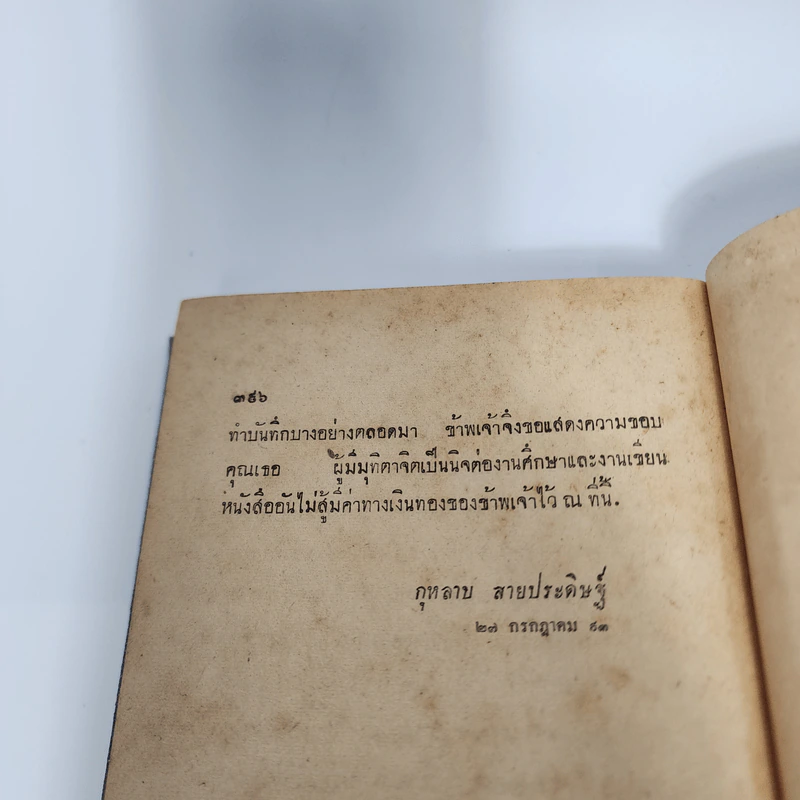 ๓๙๖
ทำบันทึกบางอย่างตลอดมา ข้าพเจ้าจึงขอแสดงความขอบ
คุณเธอ ผู้มีมุทิตาจิตเป็นนิจต่องานศึกษาและงานเขียน
หนังสืออันไม่สู้มีค่าทางเงินทองของข้าพเจ้าไว้ ณ ที่นี้.
กุหลาบ สายประดิษฐ์
๒๗ กรกฎาคม ๙๓